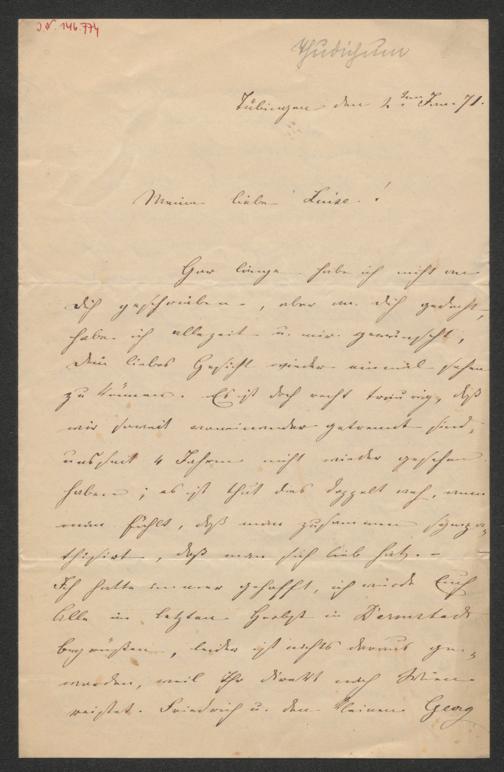 J.N. 146.774
Thudichum
Tübingen den 2ten Jan. 71.
Meine liebe Luise!
Gar lange habe ich nicht an
Dich geschrieben, aber an Dich gedacht,
habe ich allezeit u. mir gewünscht,
Dein liebes Gesicht wieder einmal sehen
zu können. Es ist doch recht traurig, daß
wir soweit voneinander getrennt sind,
uns seit 4 Jahren nicht wieder gesehen
haben; es ist thut das doppelt weh, wenn
man fühlt, daß man zusammen sympa-
thisirt, daß man sich lieb hat. –
Ich hatte immer gehofft, ich würde Euch
Alle im letzten Herbst in Darmstadt
begrüßen, leider ist nichts daraus ge-
worden, weil Ihr direkt nach Wien
reistet. Friedrich u. den kleinen Georg